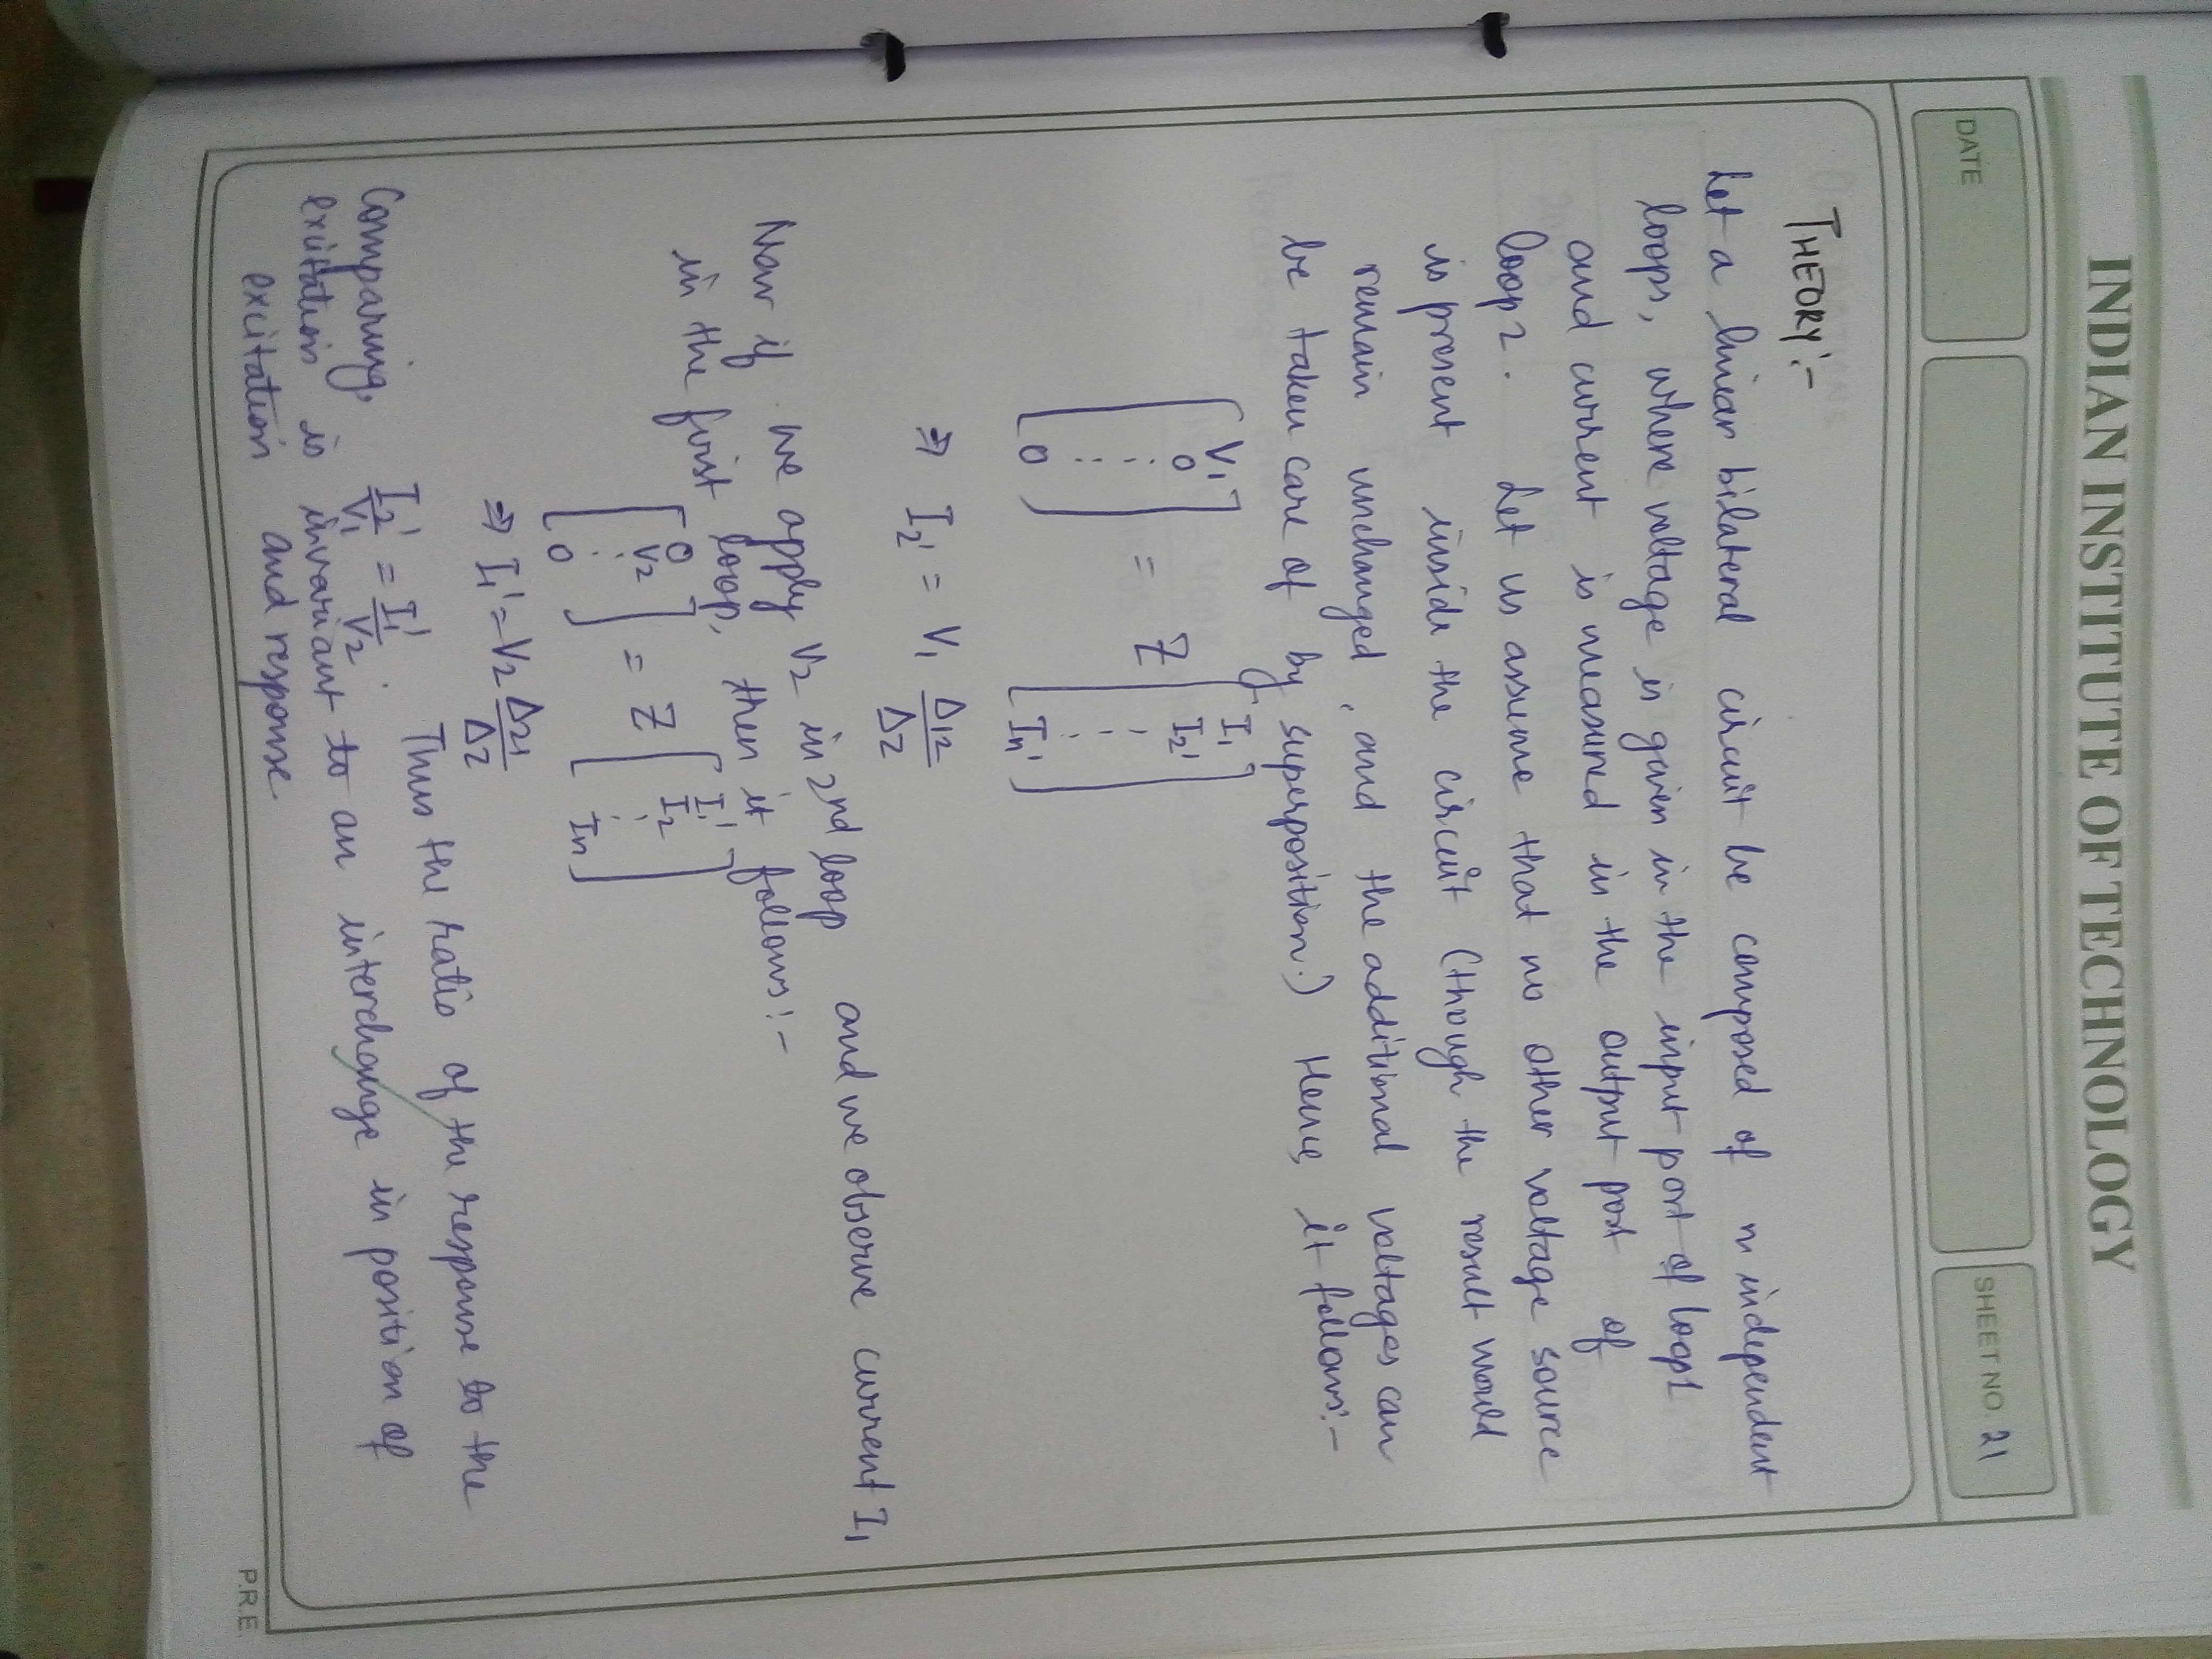 INDIAN INSTITUTE OF TECHNOLOGY
DATE
SHEET NO. 21
THEORY:-
Let a linear bilateral circuit be composed of n independent
loops, where voltage is given in the input port of loop1
and current is measured in the output port of
loop 2. Let us assume that no other voltage source
is present inside the circuit (though the result would
remain unchanged, and the additional voltages can
be taken care of by superposition.) Hence, it follows:-
[V1 0 ⋮ 0] = Z [I1 I2' ⋮ In']
⇒ I2' = V1 Δ12/ΔZ
Now if we apply V2 in 2nd loop and we observe current I1
in the first loop, then it follows:-
[0 V2 ⋮ 0] = Z [I1' I2 ⋮ In]
⇒ I1' = V2 Δ21/ΔZ
Comparing, I2'/V1 = I1'/V2. Thus the ratio of the response to the
excitation is invariant to an interchange in position of
excitation and response.
P.R.E.